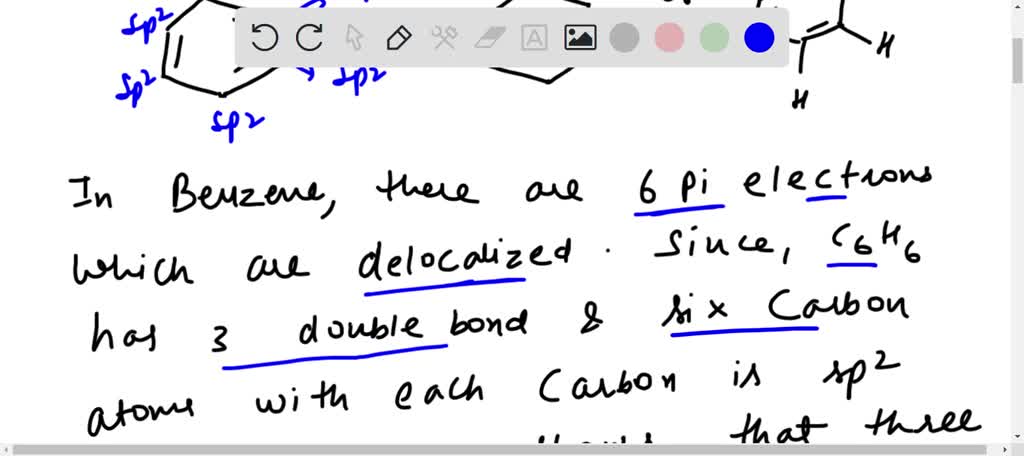 sp2
sp2
sp2
sp2
H
H
A
In Benzene, there are 6 pi electrons
which are delocalized. Since, C6H6
has 3 double bond & six Carbon
atoms with each Carbon is sp2
that three